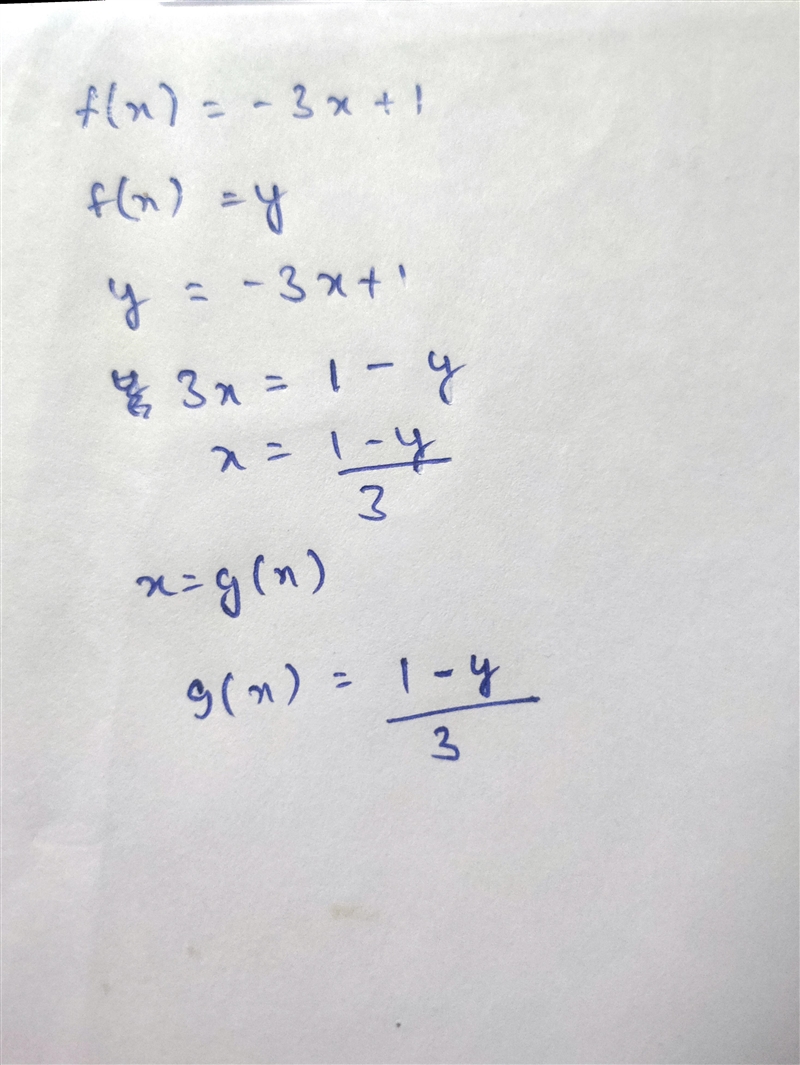 f(x) = -3x + 1
f(x) = y
y = -3x + 1
3x = 1 - y
x = (1 - y)/3
x = g(x)
g(x) = (1 - y)/3